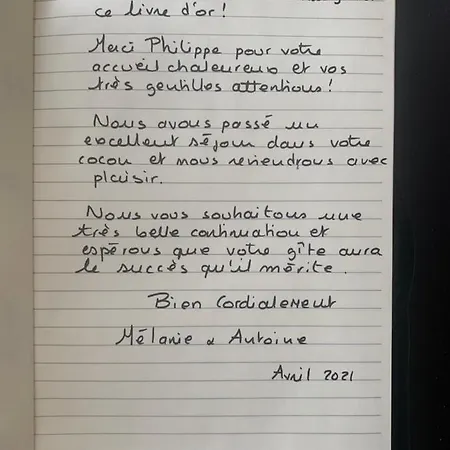 ce livre d'or !
Merci Philippe pour votre
accueil chaleureux et vos
très gentilles attentions !
Nous avons passé un
excellent séjour dans votre
cocon et nous reviendrons avec
plaisir.
Nous vous souhaitons une
très belle continuation et
espérons que votre gîte aura
le succès qu'il mérite.
Bien Cordialement
Mélanie & Antoine
Avril 2021